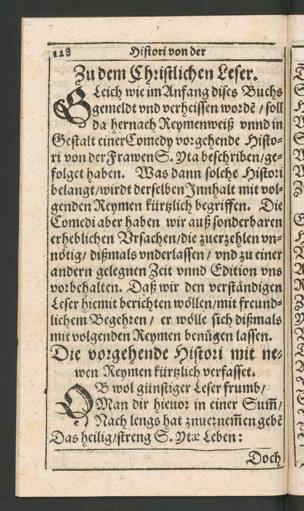 128 Histori von der
Zu dem Christlichen Leser.
GLeich wie im Anfang dises Buchs
gemeldt vnd verheissen wordē / soll
da hernach Reymenweiß vnnd in
Gestalt einer Comedy vorgehende Histo-
ri von der Frawen S. Yta beschriben/ ge-
folget haben. Was dann solche Histori
belangt/ wirdt derselben Innhalt mit vol-
genden Reymen kürtzlich begriffen. Die
Comedi aber haben wir auß sonderbaren
erheblichen Vrsachen/ die zuerzehlen vn-
nötig/ dißmals vnderlassen/ vnd zu einer
andern gelegnen Zeit vnnd Edition vns
vorbehalten. Daß wir den verständigen
Leser hiemit berichten wöllen/ mit freund-
lichem Begehren/ er wölle sich dißmals
mit volgenden Reymen benügen lassen.
Die vorgehende Histori mit ne-
wen Reymen kürtzlich verfasset.
OB wol günstiger Leser frumb/
Man dir hieuor in einer Sum̄/
Nach lengs hat zuuernemen gebē
Das heilig/ streng S. Ytæ Leben:
Doch